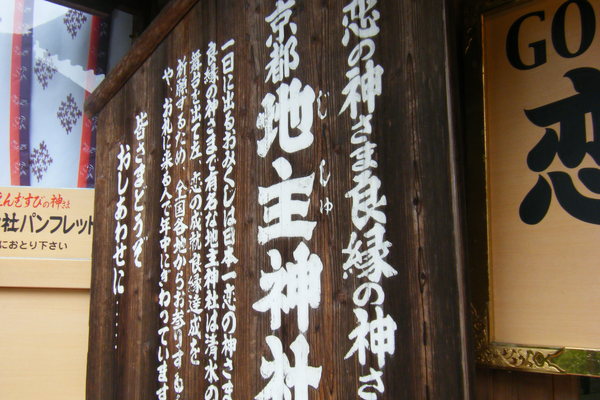 恋の神さま良縁の神さ
京都地主神社
じしゅ
一日に出るおみくじは日本一恋の神さま
良縁の神さまで有名な地主神社は清水の
舞台を出て左、恋の成就良縁達成を
祈願するため、全国各地からお参りする
や、お礼に来る人で年中にぎわっています
皆さまどうぞ
おしあわせに.....
GO
恋
えんむすびの神さま
社パンフレット
におとり下さい